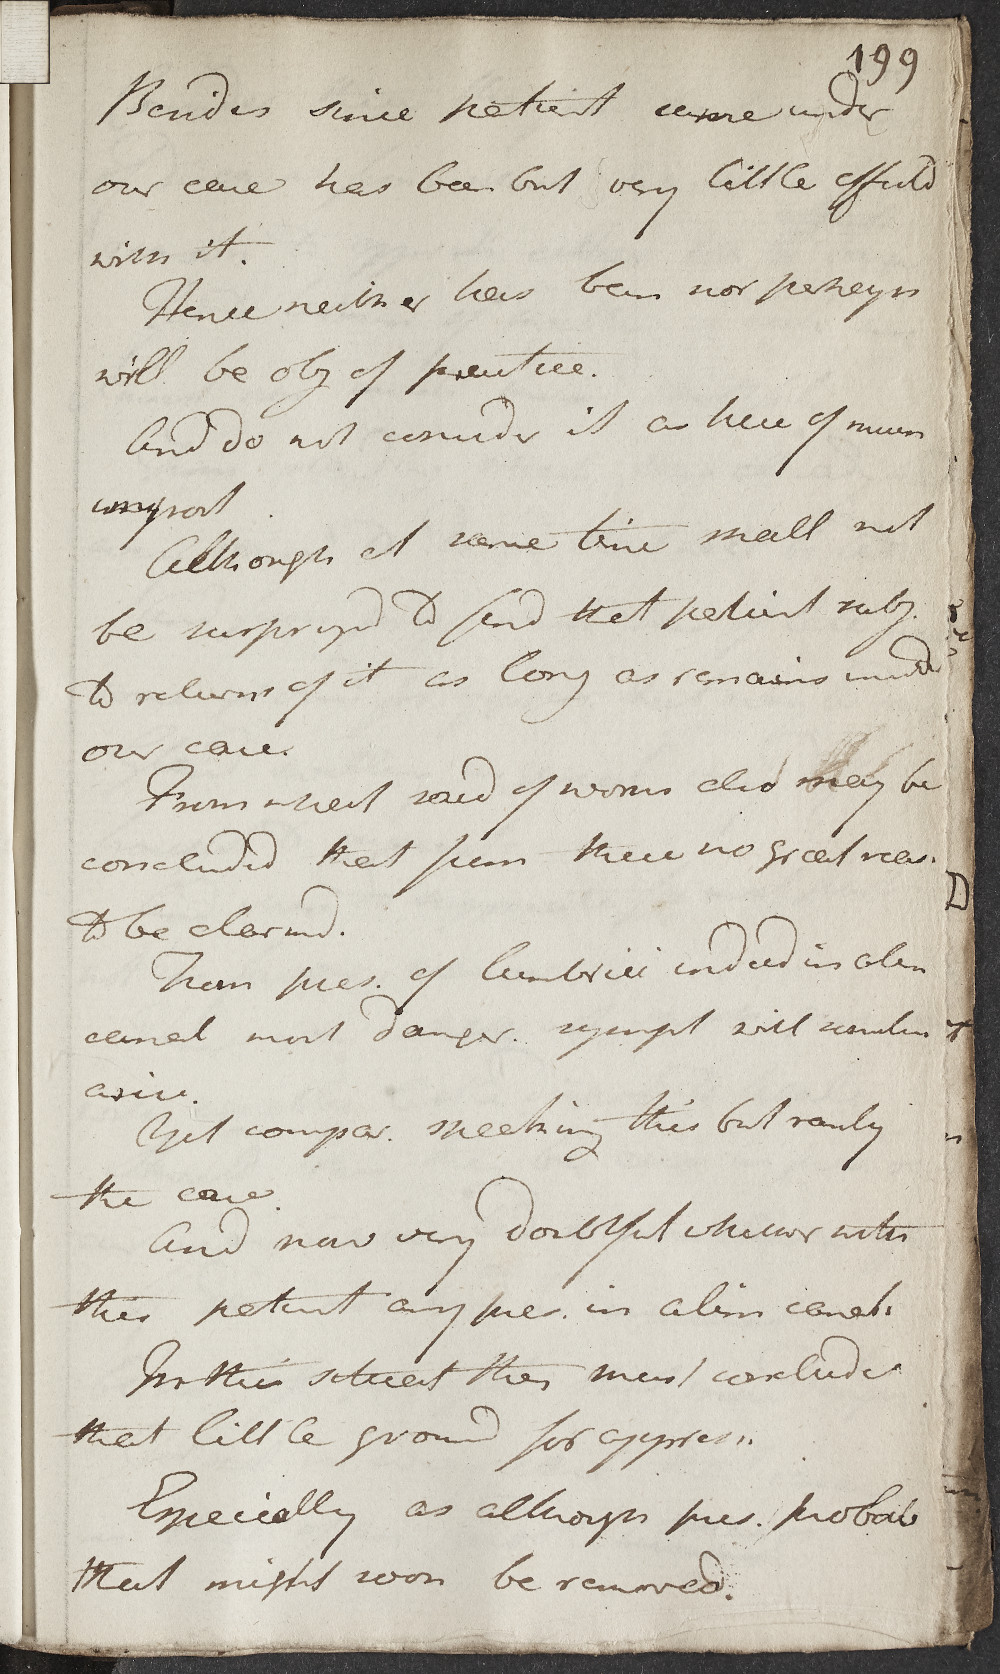 199
Besides since patient came under
our care has been but very little affectd
with it.
Hence neither has been nor perhaps
will be obj of practice.
And do not consider it as here of much
import
Although at same time shall not
be surprizd to find that patient subj.
to returns of it as long as remains under
our care.
From what said of worms also may be
concluded that from these no great reas.
to be alarmd.
From pres. of lumbrici indeed in alim
canal most danger. sympt will somtim
arise.
Yet compar. speaking this but rarely
the case.
And now very doubtful whether with
this patient any pres. in alim canal.
In this situat then must conclude
that little ground for appreh.
Especially as although pres. probab
that might soon be removed.